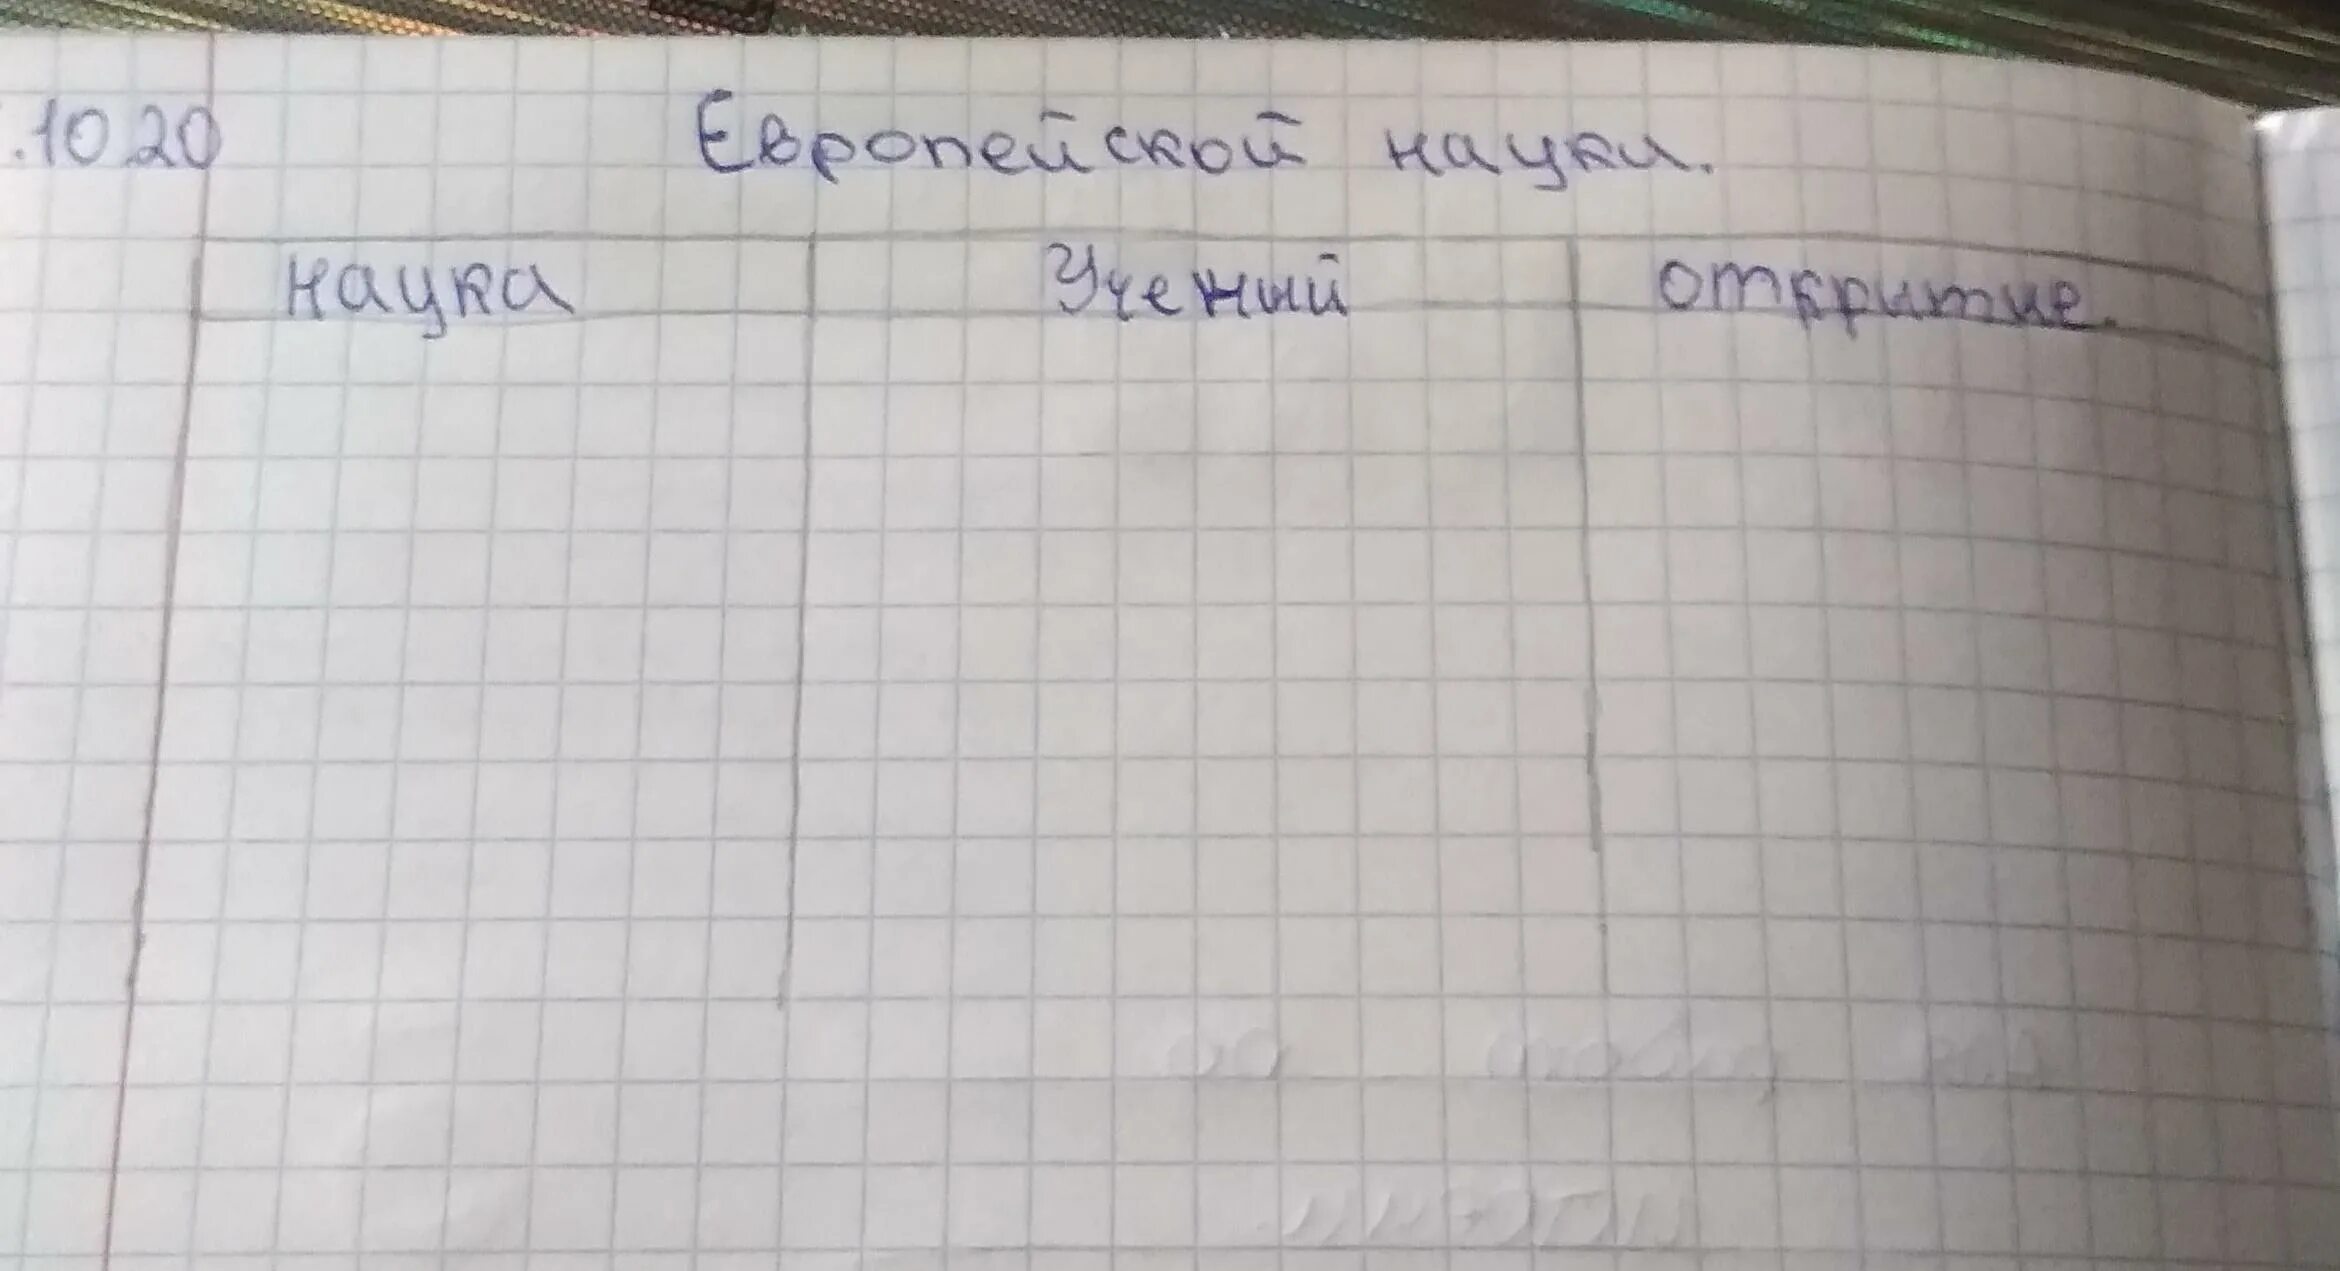 .10 20 Европейской науки.
наука Ученый открытие.